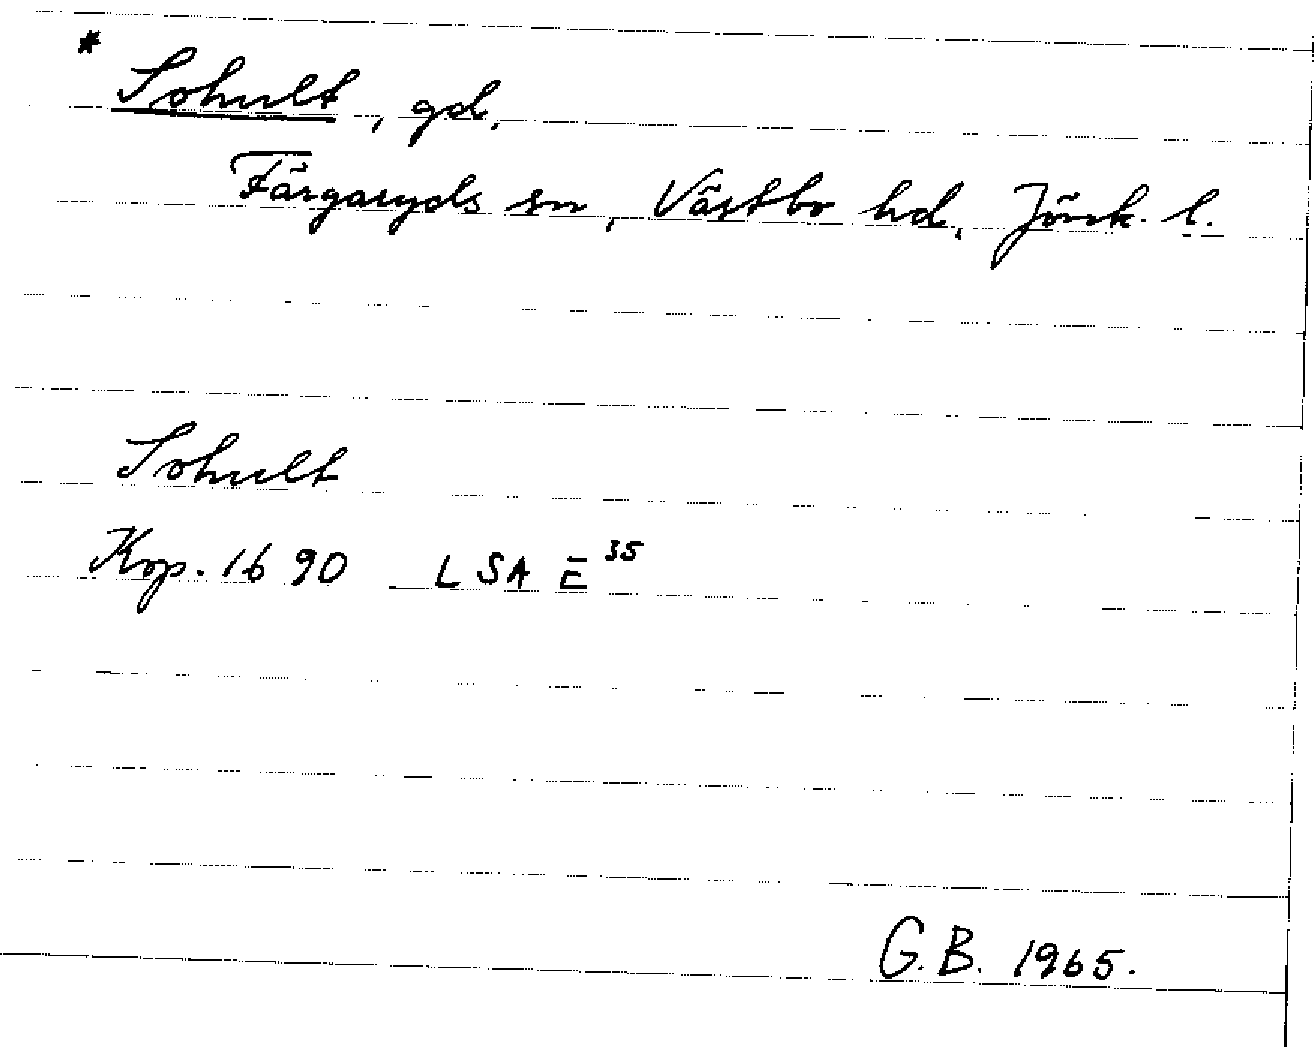 * Sohult, gd,
Färgaryds sn, Västbo hd, Jönk. l.
Sohult
Kop. 1690 LSA E 35
G.B. 1965.